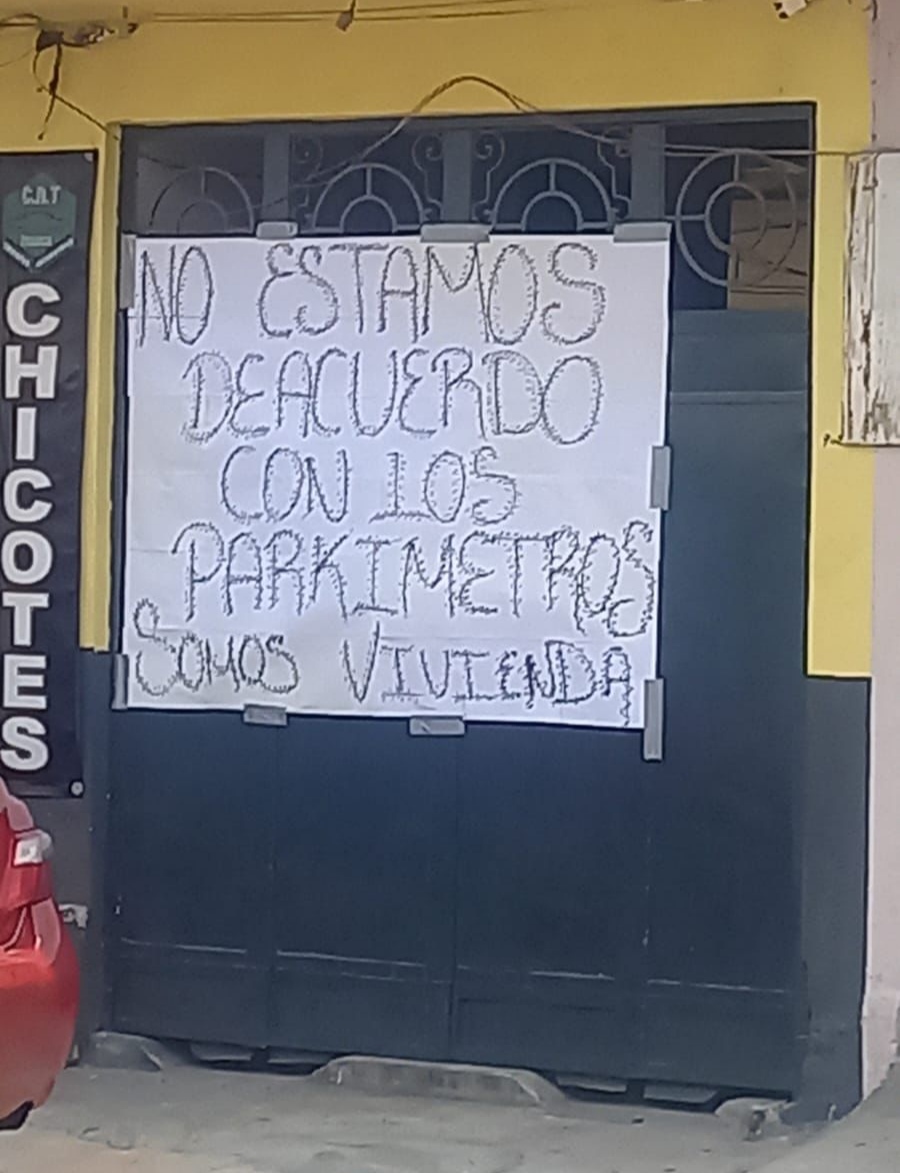 C.A.T
CHICOTES
NO ESTAMOS
DEACUERDO
CON LOS
PARKIMETROS
SOMOS VIVIENDA